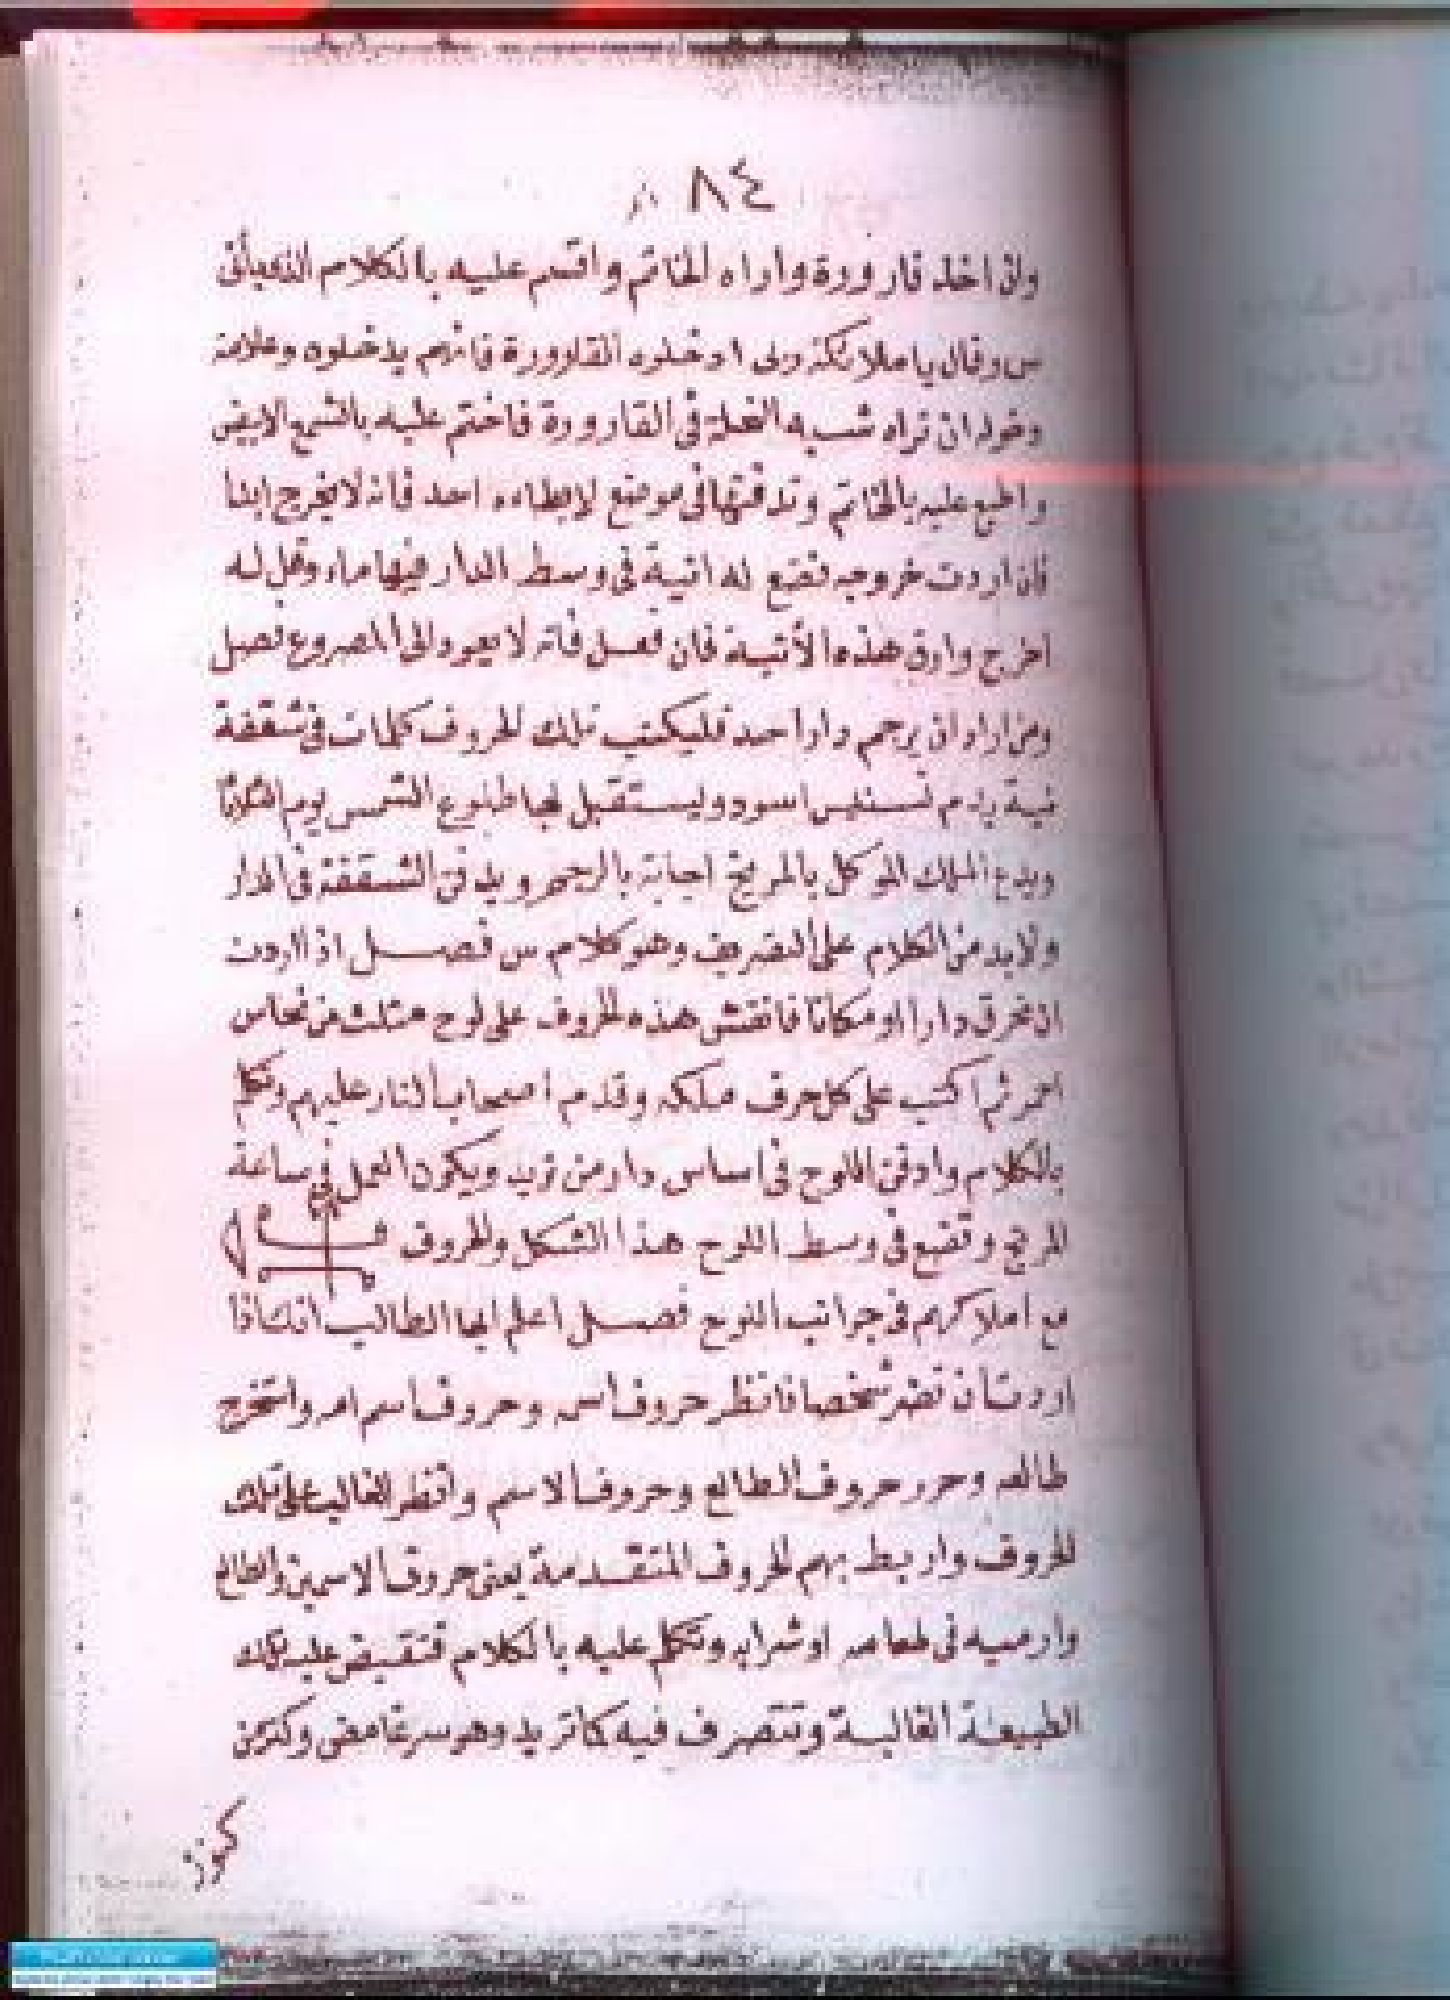 ٨٤
وان اخذ قارورة واراه الخاتم واقسم عليه بالكلام الذى يأتى
س وقال يا ملائكة ربى ادخلوه القارورة فانهم يدخلوه وعلامة
دخوله ان تراه شبه النحلة فى القارورة فاختم عليه بالشمع الابيض
واطبع عليه بالخاتم وتدفنها فى موضع لا يطاءه احد فانه لا يخرج ابدا
فان اردت خروجه فتضع له انية فى وسط الدار فيها ماء وقل له
اخرج وارق هذه الأنية فان فعل فانه لا يعود الى المصروع فصل
ومن اراد ان يرجم دار احد فليكتب تلك الحروف كلمات فى شقفة
نية بدم اسود وليستقبل بها طلوع الشمس يوم الثلاثا
ويدع الملك الموكل بالمريخ اجابة بالرجم ويدفن الشقفة فى الدار
ولابد من الكلام على التصريف وهو كلام س فصل اذا اردت
ان تحرق دارا او مكانا فانقش هذه الحروف على لوح مثلث من نحاس
احمر ثم اكتب على كل حرف ملكه وقدم اصحاب النار عليهم وتكلم
بالكلام وادفن اللوح فى اساس دار من تريد ويكون العمل فى ساعة
المريخ وتضع فى وسط اللوح هذا الشكل والحروف
مع املاكهم فى جوانب اللوح فصل اعلم ايها الطالب انك اذا
اردت أن تضر شخصا فانظر حروف اسمه وحروف اسم امه واستخرج
طالعه وحرر حروف الطالع وحروف الاسم وانظر الغالب على تلك
الحروف واربط بهم الحروف المتقدمة يعنى حروف الاسمين والطالع
وارميه فى طعامه او شرابه وتكلم عليه بالكلام فتقيض عليه تلك
الطبيعة الغالبة وتتصرف فيه كما تريد وهو سر غامض وكنز من
كنوز